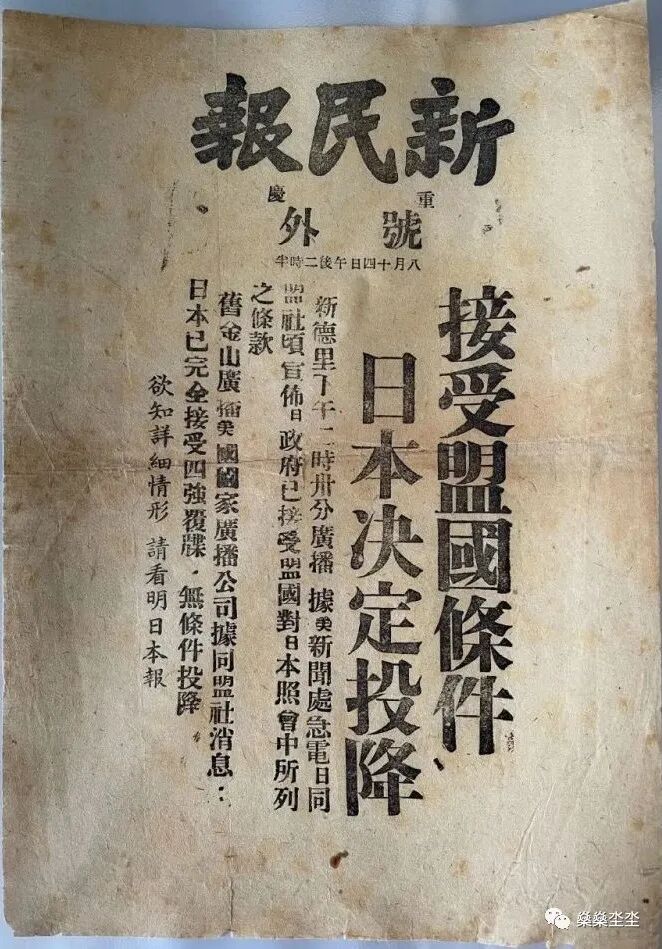 新民報
重慶
號外
八月十四日午後二時半
接受盟國條件
日本决定投降
新德里下午二時卅分廣播 據美新聞處急電日同
盟社頃宣佈日政府已接受盟國對日本照會中所列
之條款
舊金山廣播美國國家廣播公司據同盟社消息：
日本已完全接受四強覆牒．無條件投降
欲知詳細情形 請看明日本報
燊燊坔坔